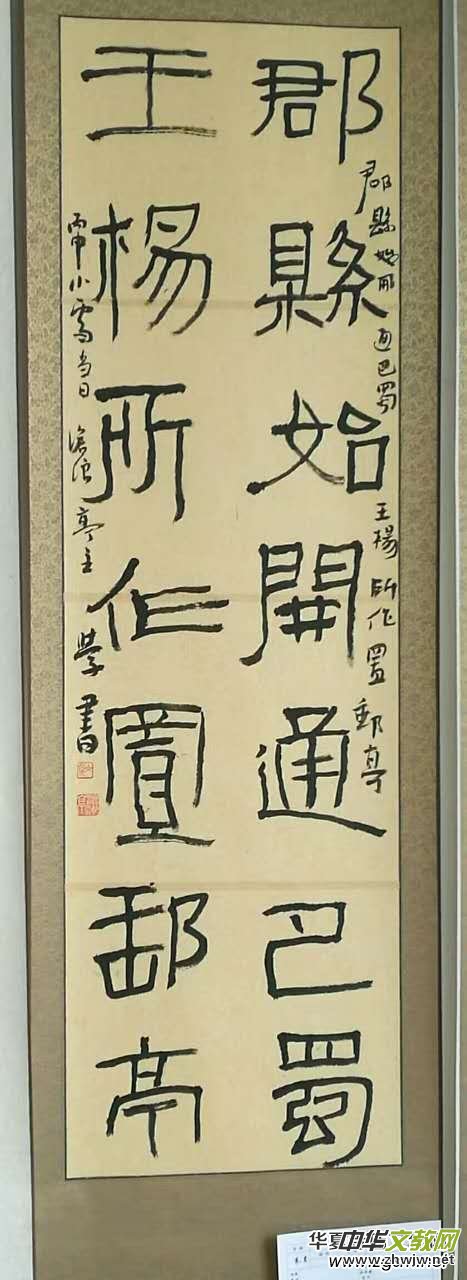 郡縣始開通巴蜀
王楊所作置郵亭
郡縣始開通巴蜀 王楊所作置郵亭
丙申小雪當日 滄浪亭主學書
华夏中华文教网
www.ghwiw.net